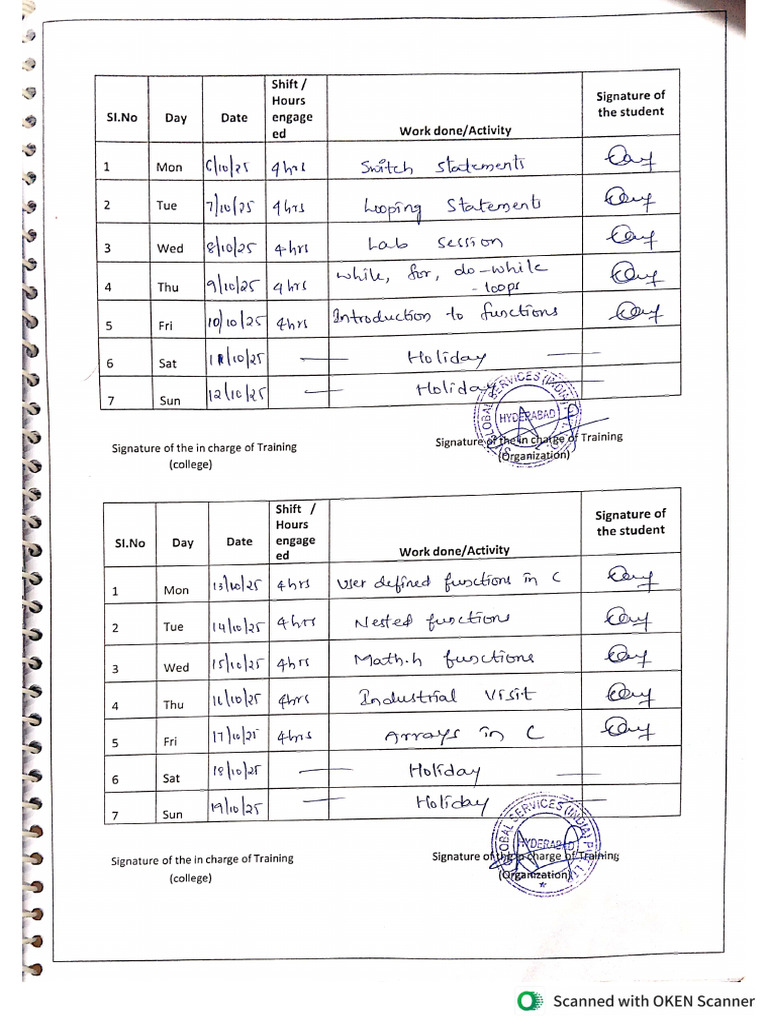 Sl.No Day Date Shift / Hours engage ed Work done/Activity Signature of the student
1 Mon 6/10/25 4hrs Switch Statements
2 Tue 7/10/25 4hrs Looping Statements
3 Wed 8/10/25 4-hrs Lab Session
4 Thu 9/10/25 4hrs while, for, do-while
- loops
5 Fri 10/10/25 4hrs Introduction to functions
6 Sat 11/10/25 — Holiday —
7 Sun 12/10/25 — Holiday
GLOBAL SERVICES (INDIA)
HYDERABAD
Signature of the in charge of Training
(college)
Signature of the in charge of Training
(Organization)
Sl.No Day Date Shift / Hours engage ed Work done/Activity Signature of the student
1 Mon 13/10/25 4hrs User defined functions in C
2 Tue 14/10/25 4hrs Nested functions
3 Wed 15/10/25 4hrs Math.h functions
4 Thu 16/10/25 4hrs Industrial Visit
5 Fri 17/10/25 4hrs Arrays in C
6 Sat 18/10/25 — Holiday —
7 Sun 19/10/25 — Holiday
GLOBAL SERVICES (INDIA) PVT. LTD
HYDERABAD
Signature of the in charge of Training
(college)
Signature of the in charge of Training
(Organization)
Scanned with OKEN Scanner